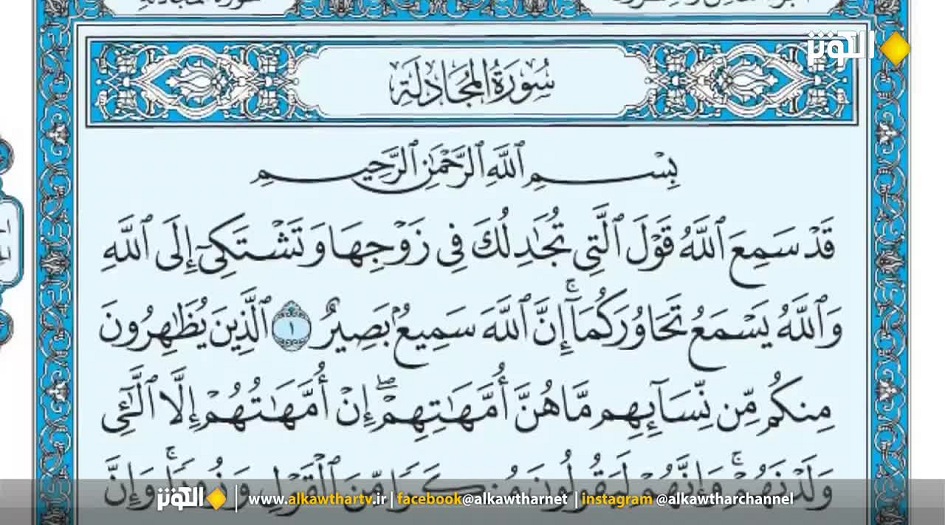 الكوثر
سُورَةُ المُجَادلَة
بِسْمِ ٱللَّهِ ٱلرَّحْمَٰنِ ٱلرَّحِيمِ
قَدْ سَمِعَ ٱللَّهُ قَوْلَ ٱلَّتِي تُجَٰدِلُكَ فِي زَوْجِهَا وَتَشْتَكِيٓ إِلَى ٱللَّهِ
وَٱللَّهُ يَسْمَعُ تَحَاوُرَكُمَآۚ إِنَّ ٱللَّهَ سَمِيعُۢ بَصِيرٌ ١ ٱلَّذِينَ يُظَٰهِرُونَ
مِنكُم مِّن نِّسَآئِهِم مَّا هُنَّ أُمَّهَٰتِهِمْۖ إِنْ أُمَّهَٰتُهُمْ إِلَّا ٱلَّٰٓـِٔي
وَلَدْنَهُمْۚ وَإِنَّهُمْ لَيَقُولُونَ مُنكَرًا مِّنَ ٱلْقَوْلِ وَزُورًاۚ وَإِنَّ
الكوثر | www.alkawthartv.ir | facebook@alkawtharnet | instagram @alkawtharchannel